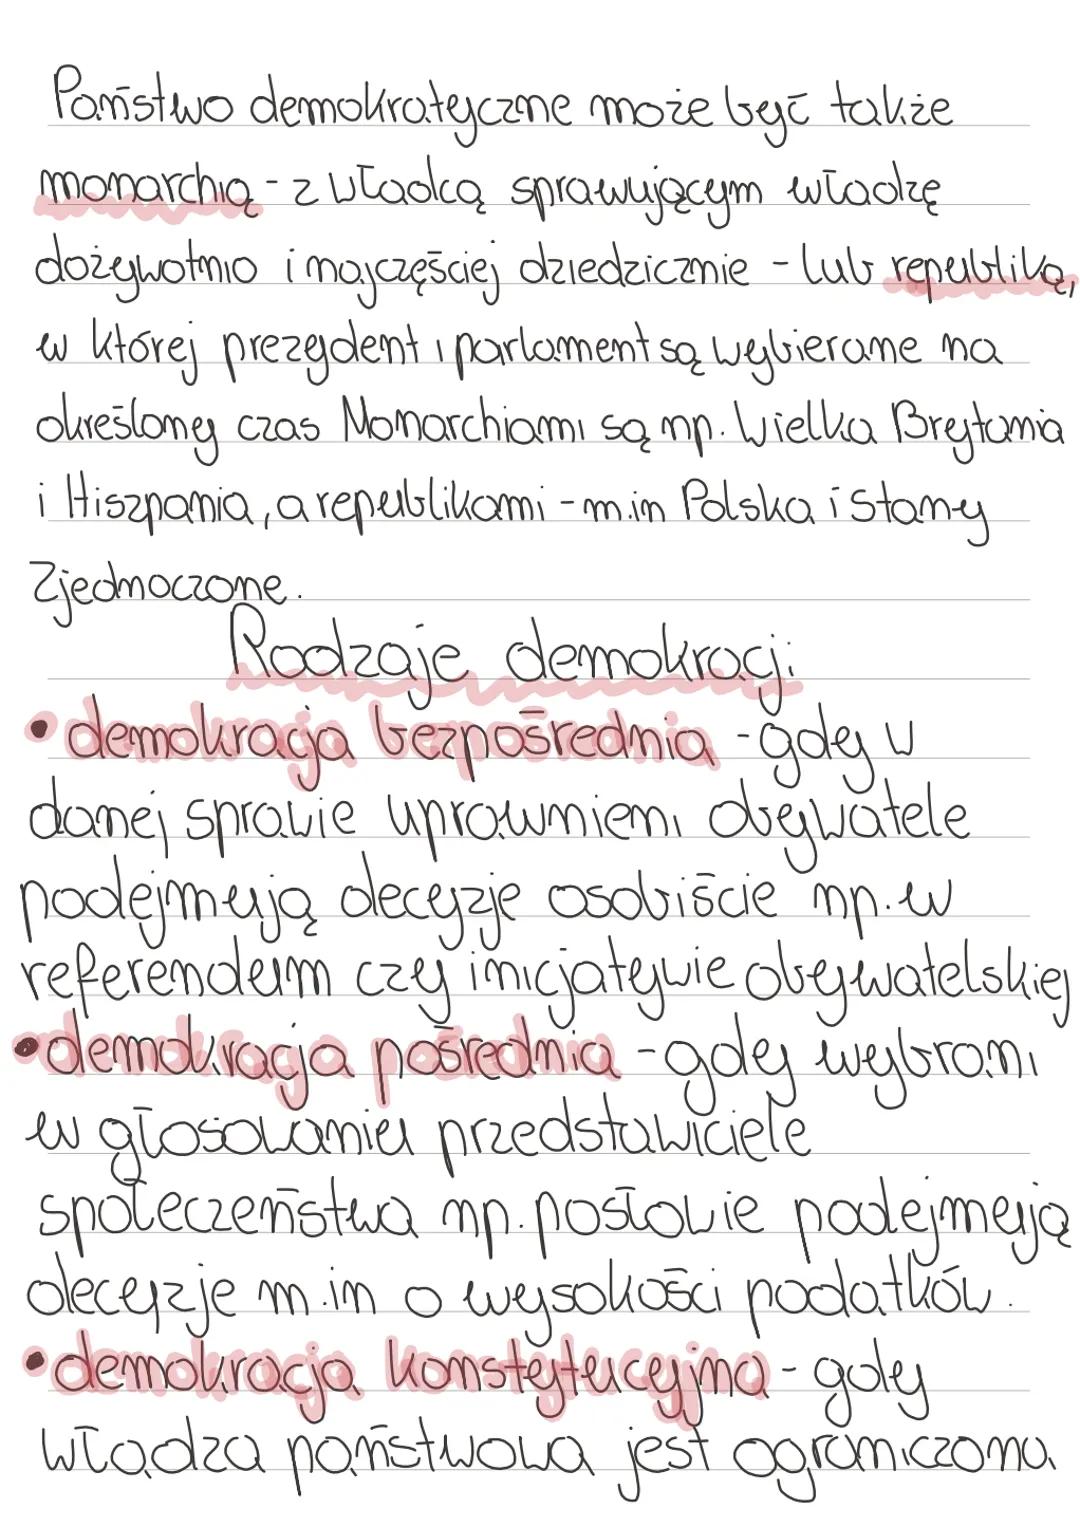 Państwo demokratyczne może być także
monarchią - z władcą sprawującym władzę
dożywotnio i najczęściej dziedzicznie - lub republiką,
w której prezydent i parlament są wybierane na
określony czas Monarchiami są np. Wielka Brytania
i Hiszpania, a republikami - m.in Polska i Stany
Zjednoczone.
Rodzaje demokracji:
• demokracja bezpośrednia - gdy w
danej sprawie uprawnieni obywatele
podejmują decyzje osobiście np. w
referendum czy inicjatywie obywatelskiej
• demokracja pośrednia - gdy wybrani
w głosowaniu przedstawiciele
społeczeństwa np. posłowie podejmują
decyzje m.in o wysokości podatków.
• demokracja konstytucyjna - gdy
władza państwowa jest ograniczona